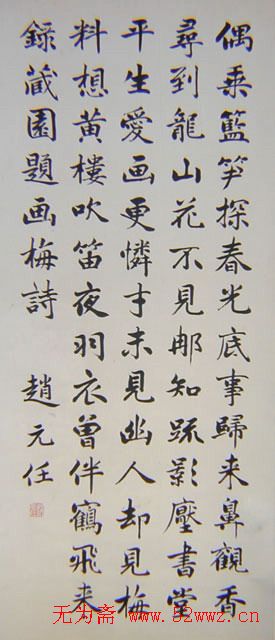 偶乘籃笋探春光底事歸来鼻觀香
尋到龍山花不見那知疏影壓書堂
平生愛画更憐才未見幽人却見梅
料想黄樓吹笛夜羽衣曾伴鶴飛来
錄藏園題画梅詩 趙元任
无为斋 www.52wwz.cn